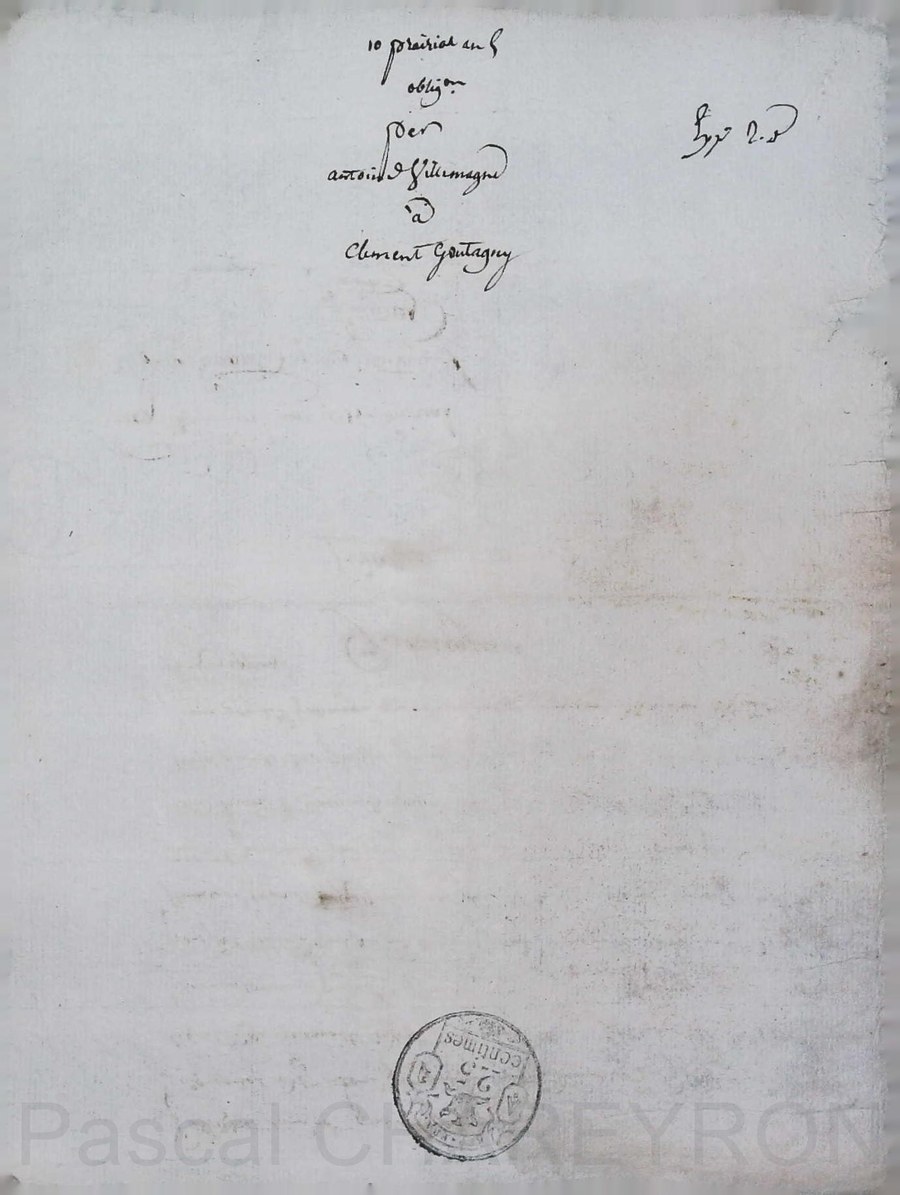 10 prairial an 5
oblig.on
per
antoine Villemagne
à
Clement Goutagny
Exp. 2.
25
centimes
Pascal CHAREYRON